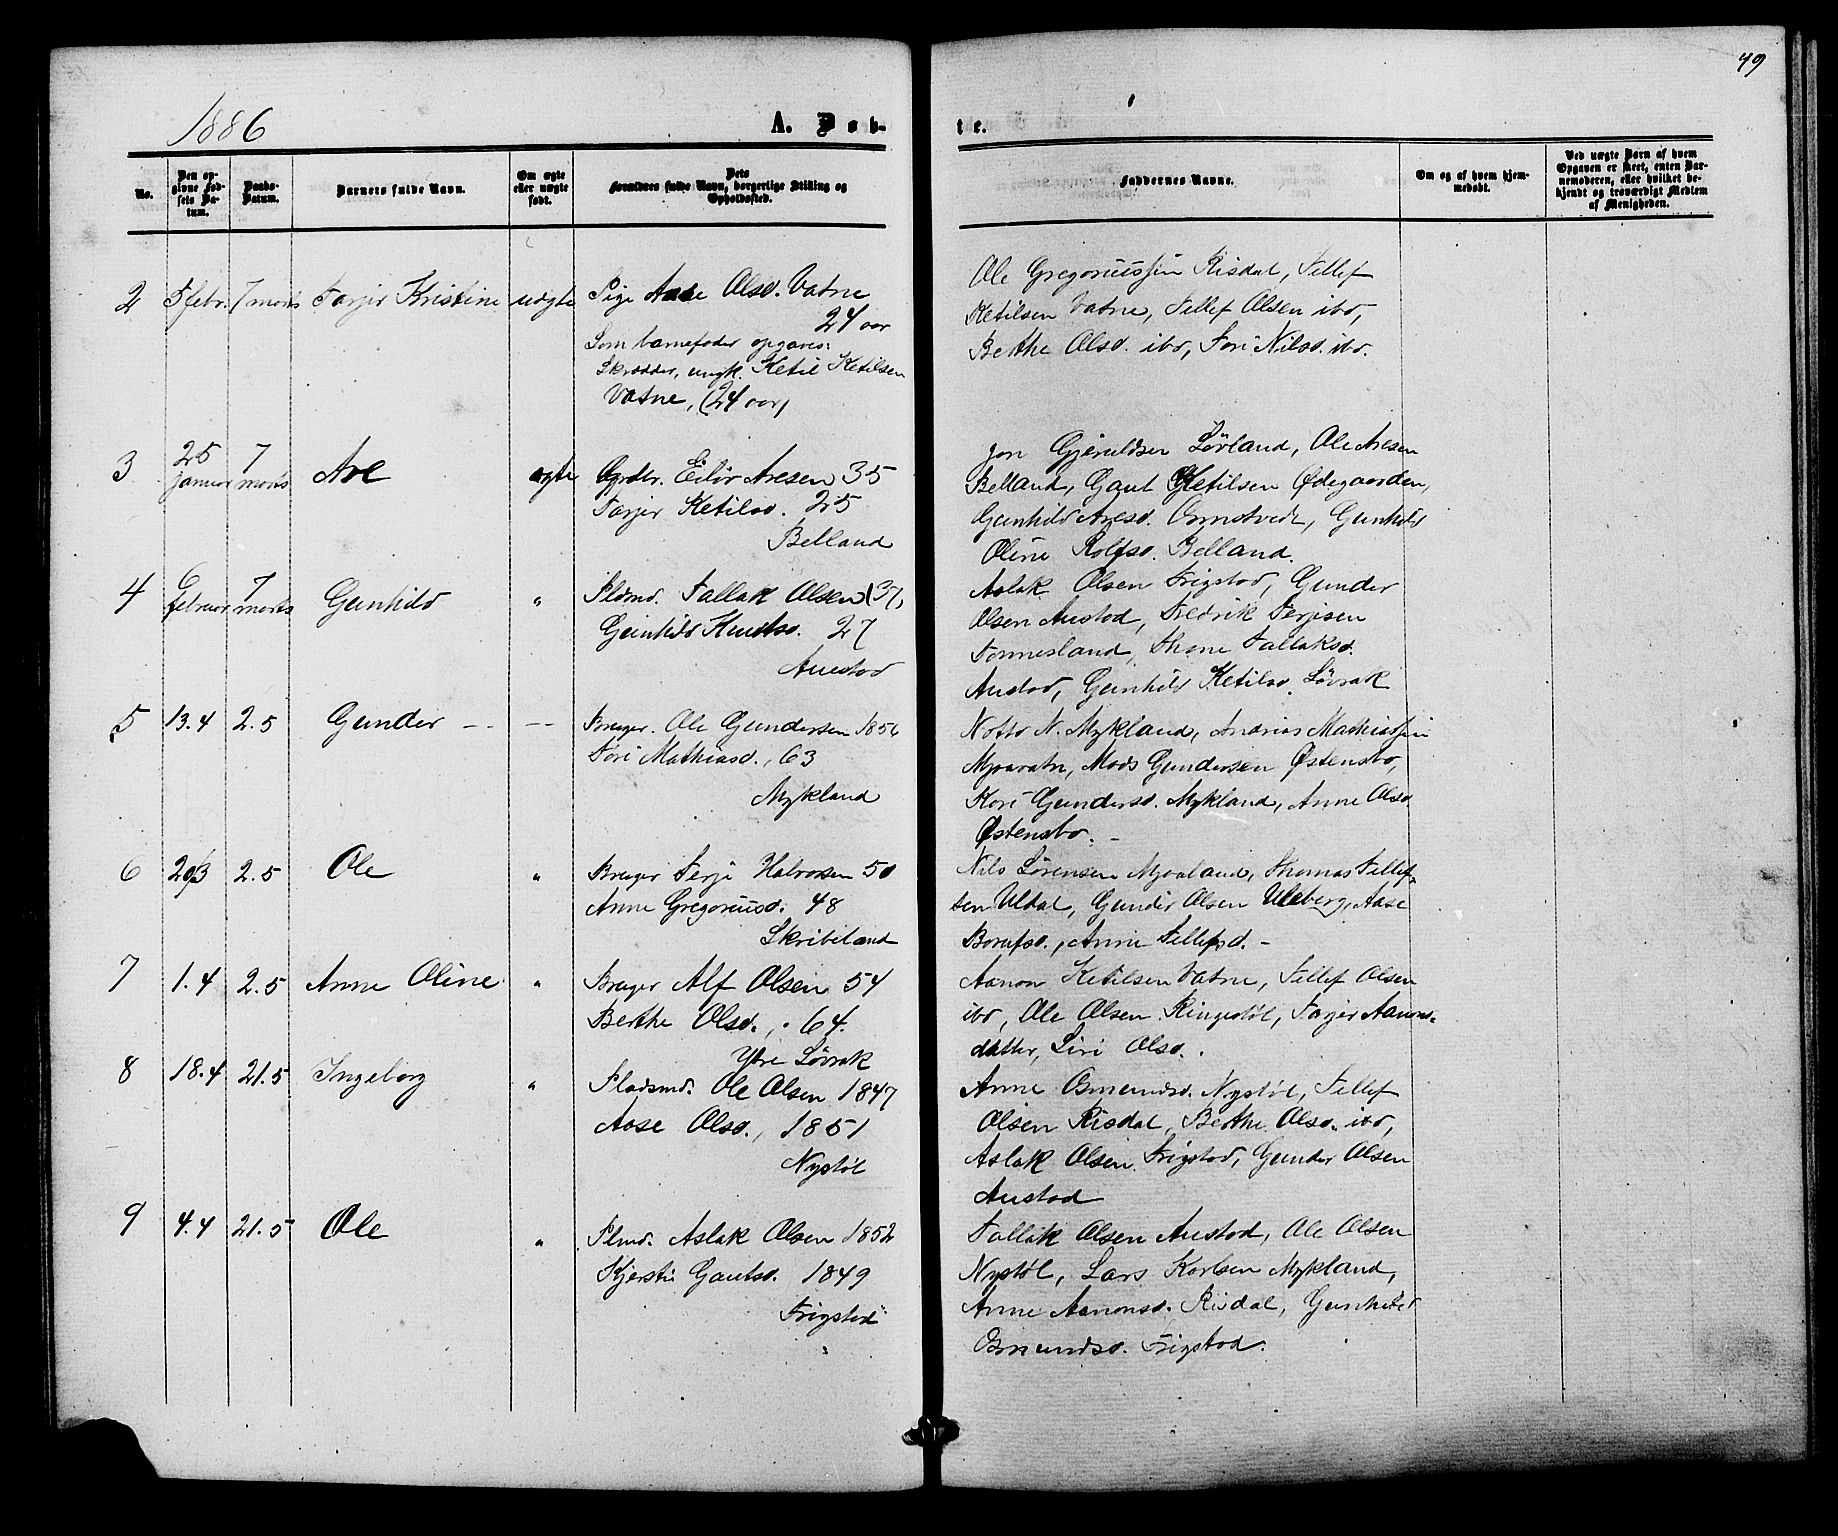 49
1886
A. Døb-
te.
No.
Den op-
givne Fød-
sels Da-
tum.
Daabs-
Datum.
Barnets fulde Navn.
Om ægte
eller uægte
født.
Dets
Forældres fulde Navn, borgerlige Stilling og
Opholdssted.
Faddernes Navne.
Om og af hvem hjem-
medøbt.
Ved uægte Børn af hvem
Opgaven er skeet, enten Bar-
nemoderen, eller hvilket be-
kjendt og troværdigt Medlem
af Menigheden.
2 5 febr. 7 marts Tarjer Kristine uægte Pige Aase Olsd. Vatne
24 aar
Som barnefader opgaves:
Skrædder, ungk. Ketil Ketilsen
Vatne, (24 aar)
Ole Gregoriussen Risdal, Tellef
Ketilsen Vatne, Tellef Olsen ibd,
Berthe Olsd. ibd, Tori Nilsd. ibd.
3 25 januar 7 marts Are ægte Grdbr. Eiliv Aresen 35
Tarjer Ketilsd. 25
Belland
Jon Gjeruldsen Løvland, Ole Aresen
Belland, Gaut Ketilsen Ødegaarden,
Gunhild Aresd. Ormstvedt, Gunhild
Oline Rolfsd. Belland.
4 6 februar 7 marts Gunhild " Pldmd. Tallak Olsen (37)
Gunhild Knutsd. 27
Austad
Aslak Olsen Frigstad, Gunder
Olsen Austad, Fredrik Terjesen
Tonnesland, Thone Tallaksd.
Austad, Gunhild Ketilsd. Løvrak
5 13.4 2.5 Gunder - - -- Bruger. Ole Gundersen 1856
Tori Mathiasd., 63
Mykland
Notto N. Mykland, Andrias Mathiassen
Myravatn, Mads Gundersen Østensbø,
Kari Gundersd. Mykland, Anne Olsd.
Østensbø. -
6 20/3 2.5 Ole " Bruger Terje Halvorsen 50
Anne Gregoriusd. 48
Skribeland
Nils Sørensen Mjaaland, Thomas Tellef-
sen Uldal, Gunder Olsen Uleberg, Aase
, Anne Tellefsd. -
7 1.4 2.5 Anne Oline " Bruger Alf Olsen 54
Berthe Olsd., 64.
Ytre Løvrak
Aanon Ketilsen Vatne, Tellef Olsen
ibd, Ole Olsen Ringestøl, Tarjer Aanons-
datter, Siri Olsd.
8 18.4 21.5 Ingeborg " Pladsmd. Ole Olsen 1847
Aase Olsd., 1851
Nystøl
Anne Osmundsd. Nystøl, Tellef
Olsen Risdal, Berthe Olsd. ibd,
Aslak Olsen Frigstad, Gunder Olsen
Austad
9 4.4 21.5 Ole " Plmd. Aslak Olsen 1852
Kjersti Gautsd. 1849
Frigstad
Tallak Olsen Austad, Ole Olsen
Nystøl, Lars Karlsen Mykland,
Anne Aanonsd. Risdal, Gunhild
Osmundsd. Frigstad.